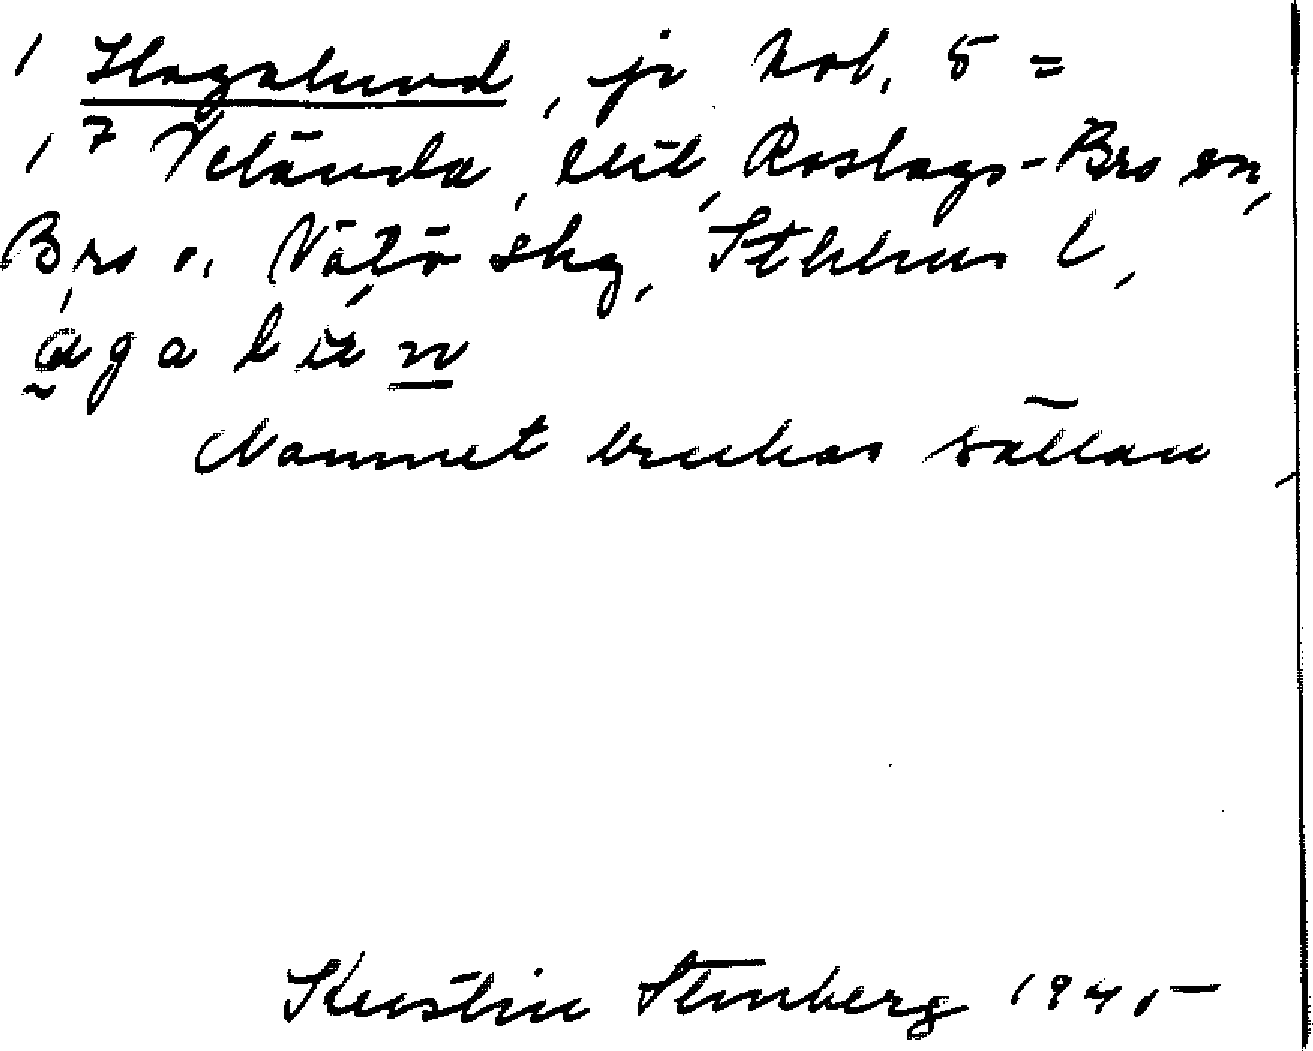 1 Hagalund, jr kol. 5 =
1 7 Veländа, Roslags-Bro sn,
Bro o. Vätö skg, Sthlms l,
Namnet brukas sällan
Kerstin Stenberg 1945